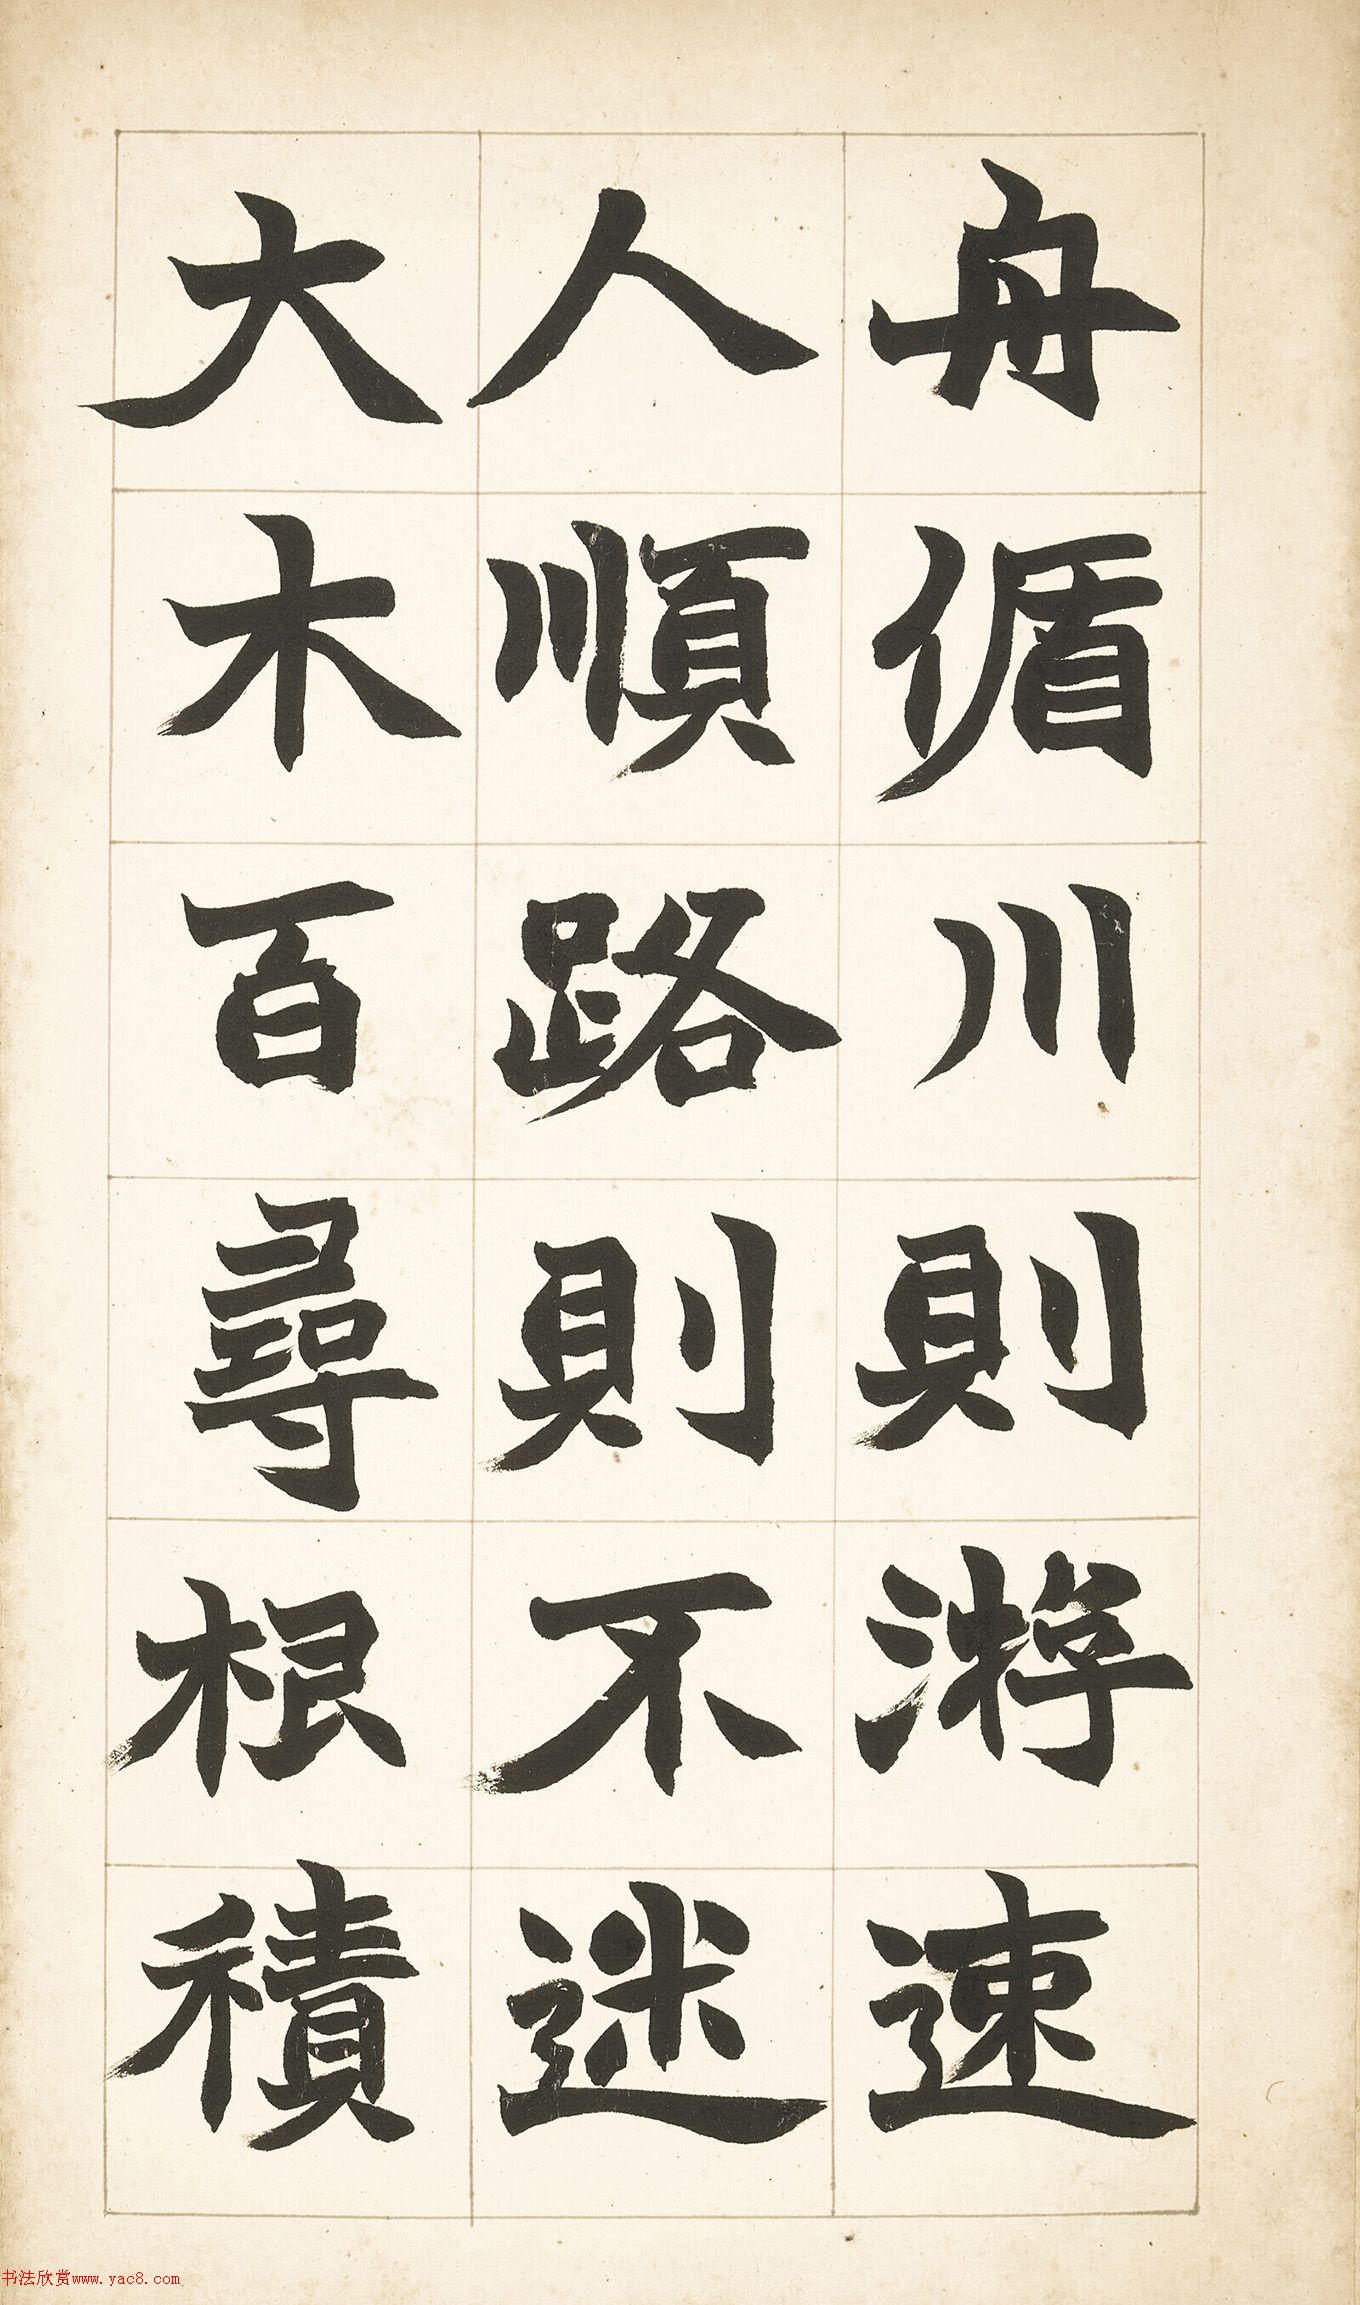 舟循川則游速
人順路則不迷
大木百尋根積
书法欣赏www.yac8.com